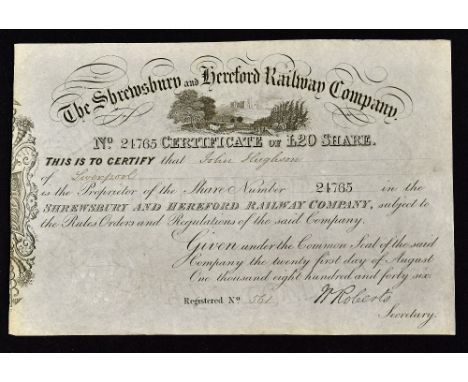 The Shrewsbury and Hereford Railway Company
No 24765 CERTIFICATE OF L20 SHARE.
THIS IS TO CERTIFY that John Hughson
of Liverpool
is the Proprietor of the Share Number 24765 in the
SHREWSBURY AND HEREFORD RAILWAY COMPANY, subject to
the Rules Orders and Regulations of the said Company.
Given under the Common Seal of the said
Company the twenty first day of August
One thousand eight hundred and forty six.
Registered No 561 W Roberts
Secretary.